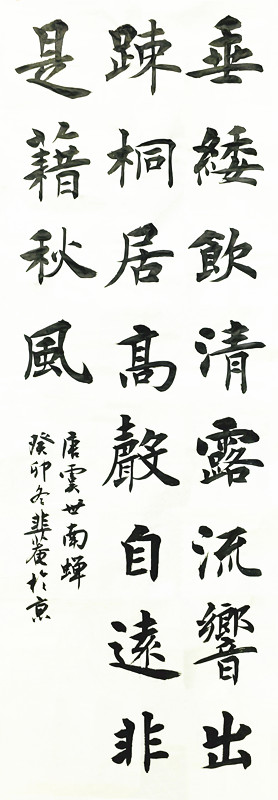 垂緌飲清露流響出
踈桐居高聲自遠非
是藉秋風
唐虞世南蝉
癸卯冬非菴於京